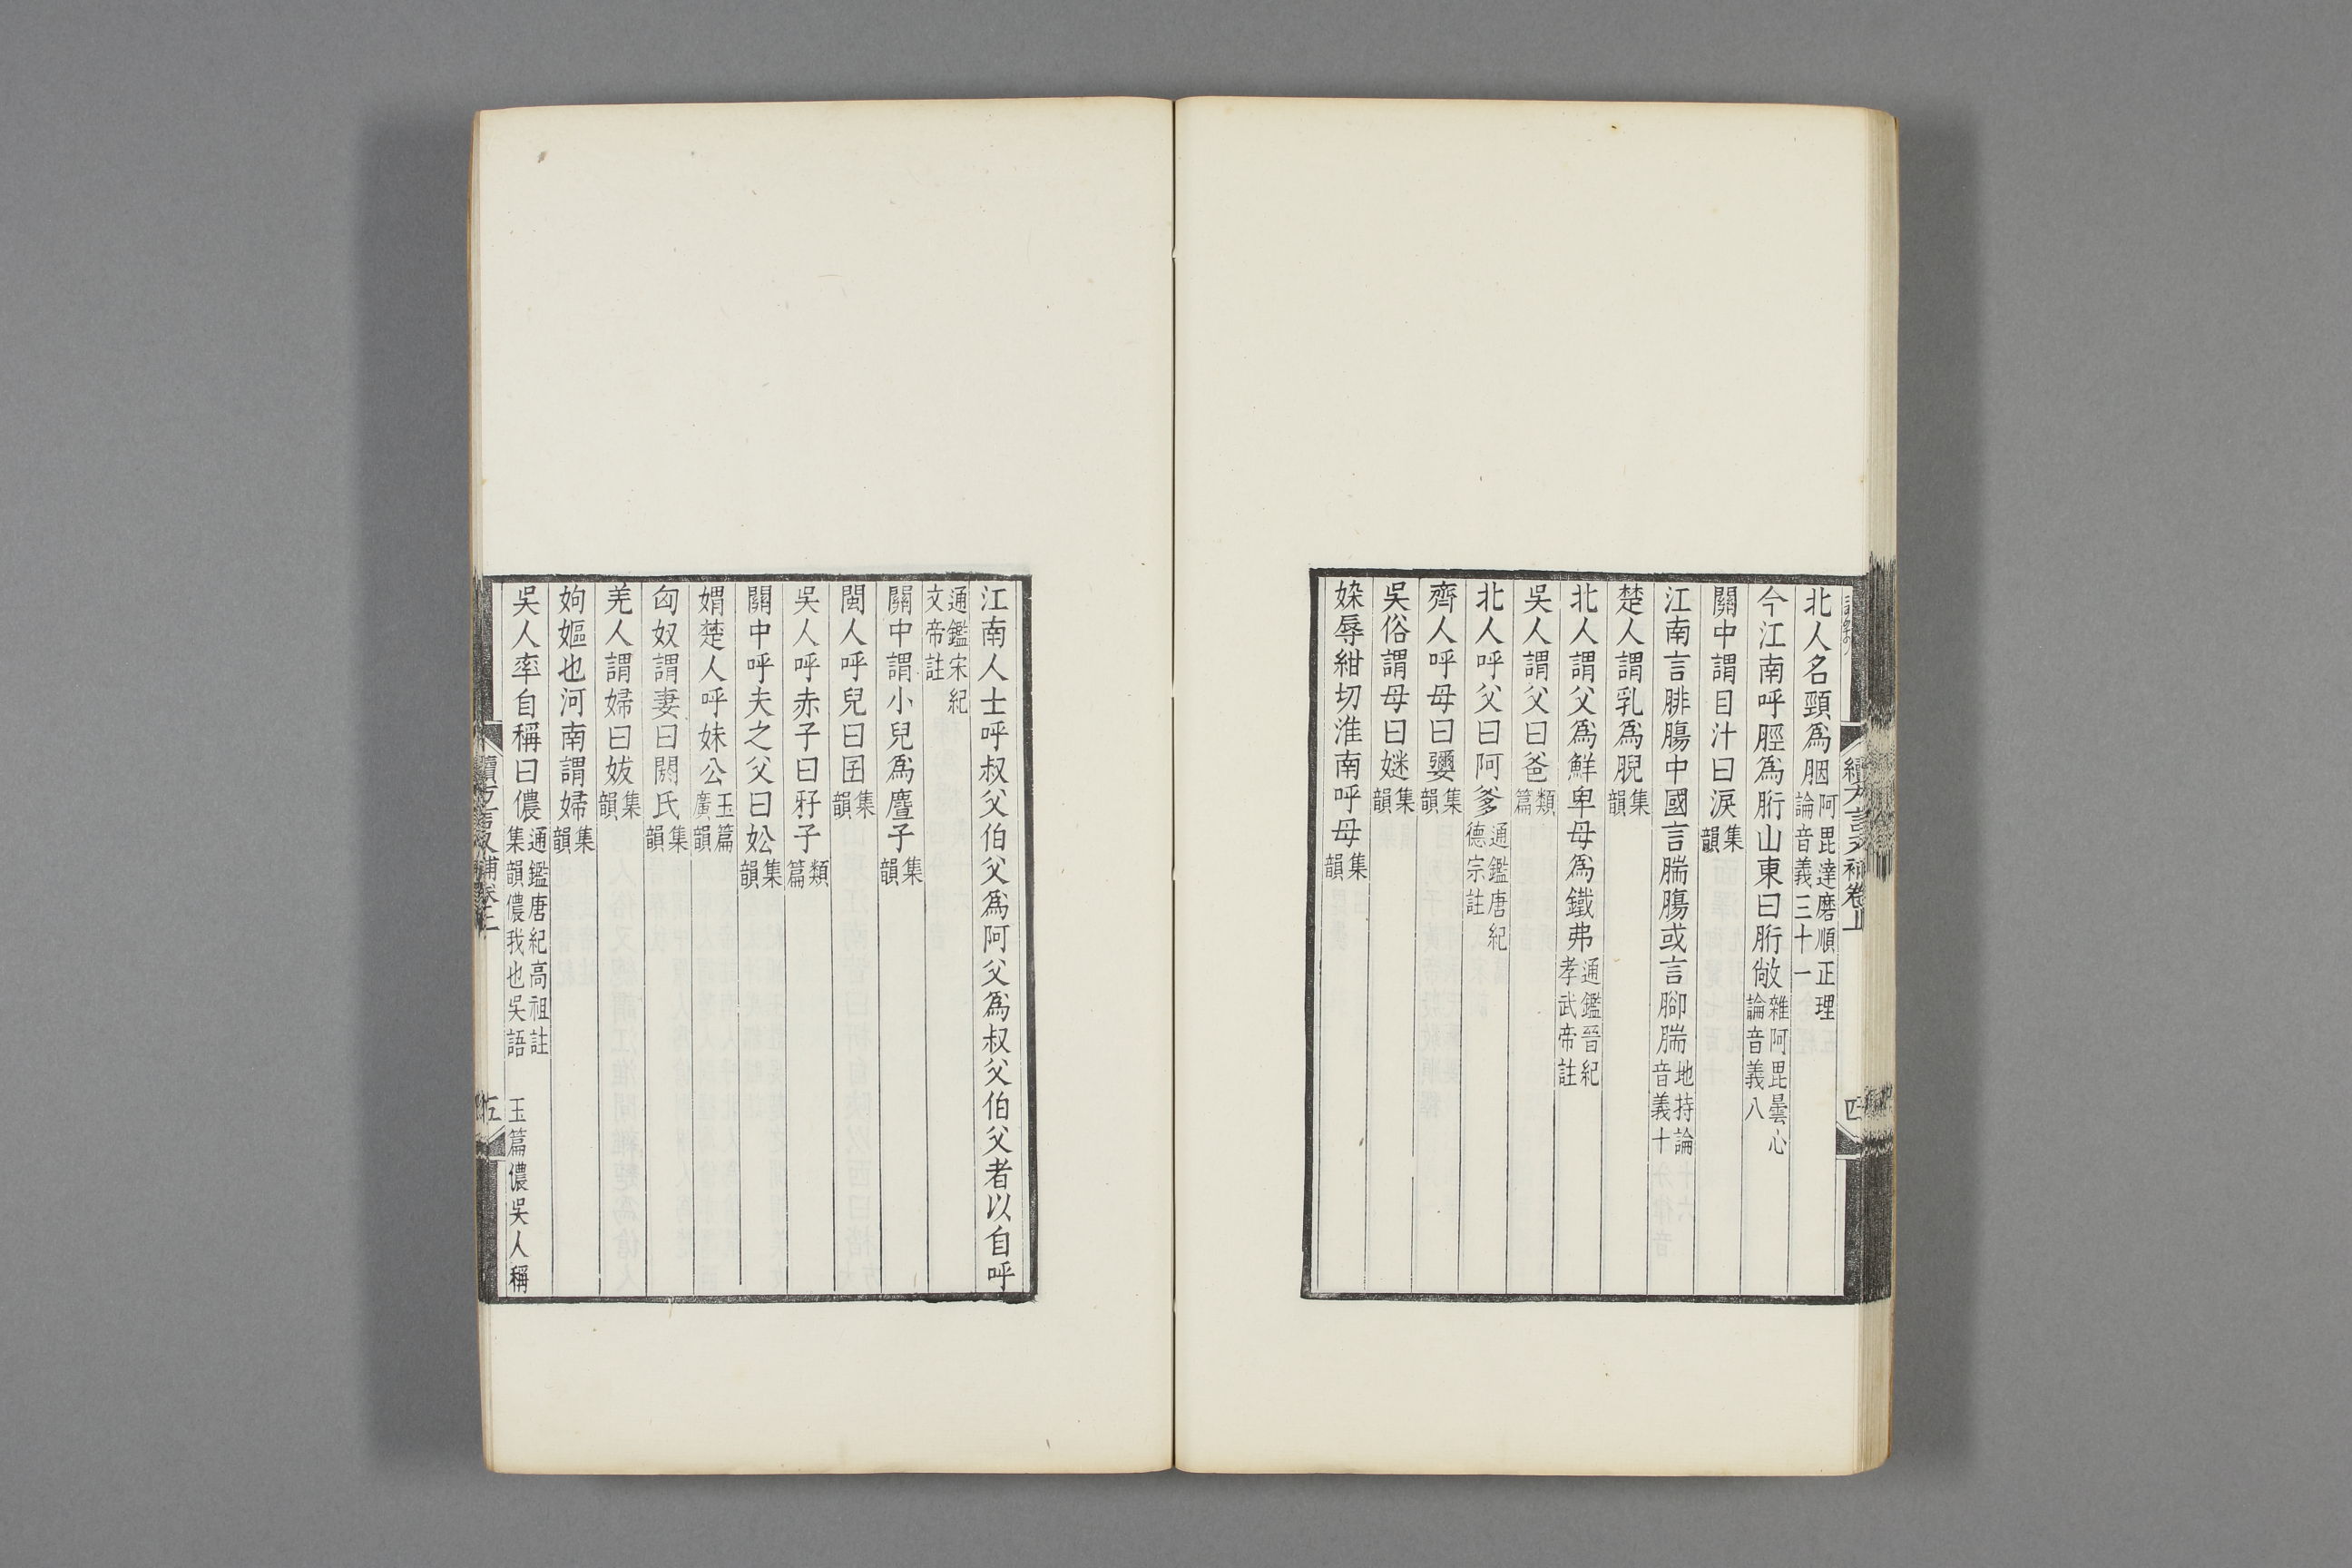 北人名頸爲胭阿毘達磨順正理論音義三十一
今江南呼脛爲胻山東曰胻敞雜阿毘曇心論音義八
關中謂目汁曰淚集韻
江南言腓腸中國言腨腸或言腳腨地持論音義十
楚人謂乳爲腉集韻
北人謂父爲鮮卑母爲鐵弗通鑑晉紀孝武帝註
吳人謂父曰爸類篇
北人呼父曰阿爹通鑑唐紀德宗註
齊人呼母曰㜷集韻
吳俗謂母曰媄集韻
㛦辱紺切淮南呼母集韻
江南人士呼叔父伯父爲阿父爲叔父伯父者以自呼
通鑑宋紀文帝註
關中謂小兒爲麆子集韻
閩人呼兒曰囝集韻
吳人呼赤子曰㸧子類篇
關中呼夫之父曰妐集韻
媦楚人呼妹公玉篇廣韻
匈奴謂妻曰閼氏集韻
羌人謂婦曰妭集韻
姁嫗也河南謂婦集韻
吳人率自稱曰儂通鑑唐紀高祖註集韻儂我也吳語 玉篇儂吳人稱
續方言又補卷上 四
續方言又補卷上 五